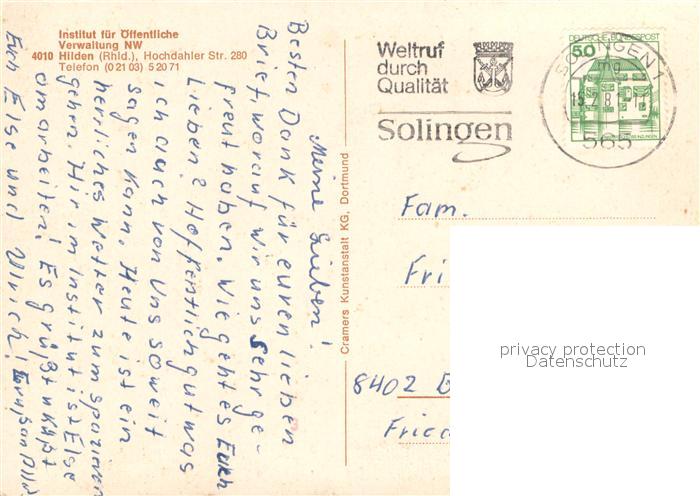 Institut für Öffentliche
Verwaltung NW
4010 Hilden (Rhld.), Hochdahler Str. 280
Telefon (0 21 03) 5 20 71
Meine Lieben!
Besten Dank für euren lieben
Brief, worauf wir uns sehr ge-
freut haben. Wie geht es Euch
Lieben? Hoffentlich gut was
ich auch von Uns soweit
sagen kann. Heute ist ein
herrliches Wetter zum spazieren
gehen. Hir im Institut ist Else
am arbeiten! Es grüßt u küßt
Euch Else und Ulrich!
Cramers Kunstanstalt KG, Dortmund
Weltruf
durch
Qualität
Solingen
DEUTSCHE BUNDESPOST
50
SOLINGEN 1
mg
565
Fam.
Fri
8402
Fried
privacy protection
Datenschutz